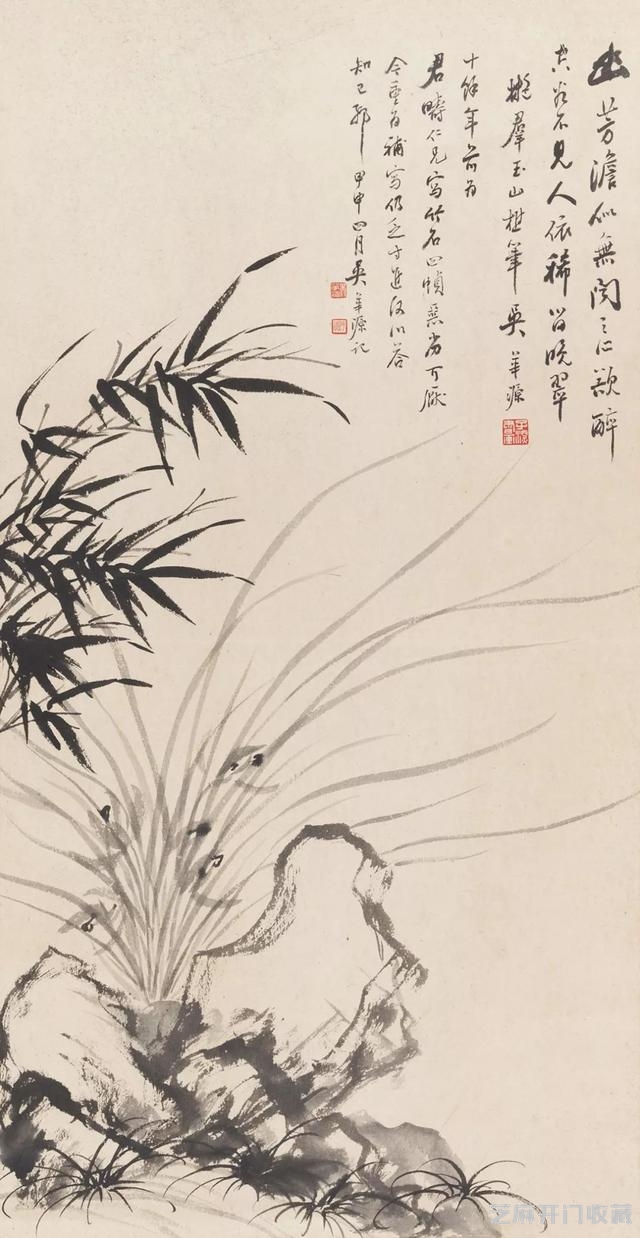 幽芳澹似無聞之心欲醉
空谷不見人依稀晚翠
擬羣玉山樵筆 吳華源
十餘年前爲
君疇仁兄寫竹石四幀惡劣可厭
今重爲補寫仍乏寸進何以答
知己耶 甲申四月吳華源記
芝麻开门收藏